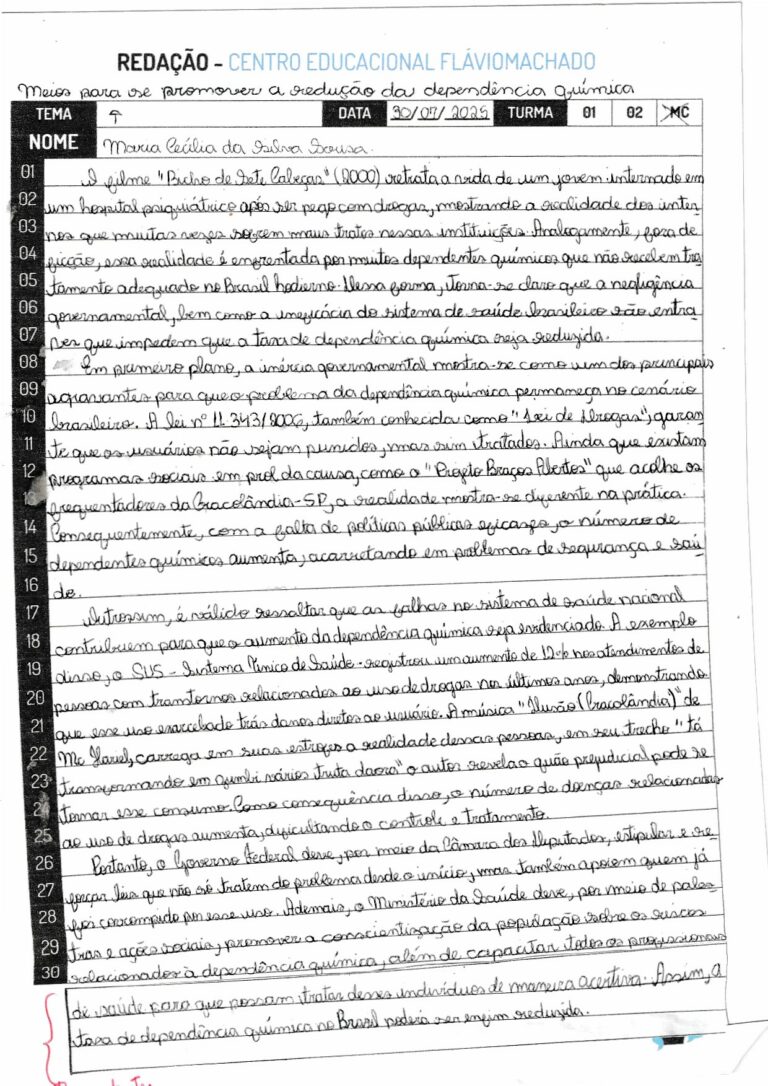 REDAÇÃO - CENTRO EDUCACIONAL FLÁVIOMACHADO
Meios para se promover a redução da dependência química
TEMA ↑ DATA 30/07/2025 TURMA 01 02 MC
NOME Maria Cecília da Silva Sousa.
01 O filme "Bicho de Sete Cabeças" (2000) retrata a vida de um jovem internado em
02 um hospital psiquiátrico após ser pego com drogas, mostrando a realidade dos inter
03 nos que muitas vezes sofrem maus tratos nessas instituições. Analogamente, fora da
04 ficção, essa realidade é enfrentada por muitos dependentes químicos que não recebem tra
05 tamento adequado no Brasil hodierno. Dessa forma, torna-se claro que a negligência
06 governamental, bem como a ineficácia do sistema de saúde brasileiro são entra
07 ves que impedem que a taxa de dependência química seja reduzida.
08 Em primeiro plano, a inércia governamental mostra-se como um dos principais
09 agravantes para que o problema da dependência química permaneça no cenário
10 brasileiro. A lei nº 11.343/2006, também conhecida como "Lei de Drogas", garan
11 te que os usuários não sejam punidos, mas sim tratados. Ainda que existam
12 programas sociais em prol da causa, como o "Projeto Braços Abertos" que acolhe os
13 frequentadores da Cracolândia-SP, a realidade mostra-se diferente na prática.
14 Consequentemente, com a falta de políticas públicas eficazes, o número de
15 dependentes químicos aumenta, acarretando em problemas de segurança e saú
16 de.
17 Outrossim, é válido ressaltar que as falhas no sistema de saúde nacional
18 contribuem para que o aumento da dependência química seja evidenciado. A exemplo
19 disso, o SUS - Sistema Único de Saúde - registrou um aumento de 12% nos atendimentos de
20 pessoas com transtornos relacionados ao uso de drogas nos últimos anos, demonstrando
21 que esse uso exarcebado trás danos diretos ao usuário. A música "Ilusão (Cracolândia)" de
22 Mc Hariel, carrega em suas estrofes a realidade dessas pessoas, em seu trecho "tá
23 transformando em zumbi vários truta daora" o autor revela o quão prejudicial pode se
24 tornar esse consumo. Como consequência disso, o número de doenças relacionadas
25 ao uso de drogas aumenta, dificultando o controle e tratamento.
26 Portanto, o Governo Federal deve, por meio da Câmara dos Deputados, estipular e re
27 forçar leis que não só tratem do problema desde o início, mas também apoiem quem já
28 foi corrompido por esse uso. Ademais, o Ministério da Saúde deve, por meio de pales
29 tras e ações sociais, promover a conscientização da população sobre os riscos
30 relacionados à dependência química, além de capacitar todos os profissionais
de saúde para que possam tratar desses indivíduos de maneira acertiva. Assim, a
taxa de dependência química no Brasil poderá ser enfim reduzida.